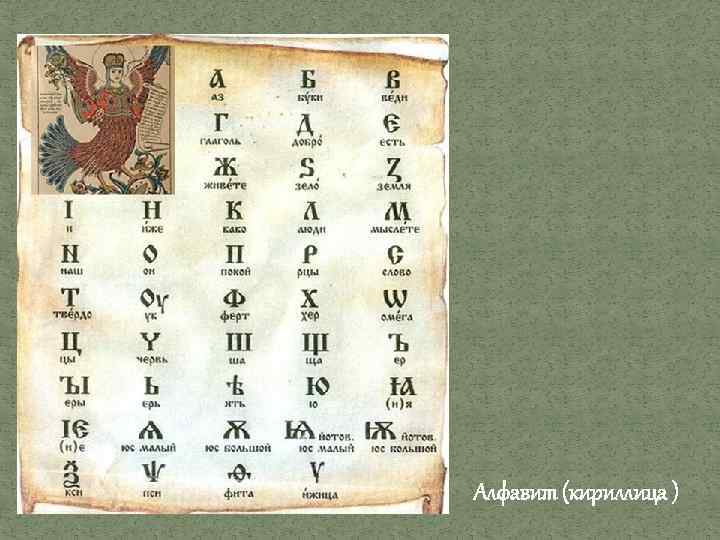 А Б В
аз бу́ки ве́ди
Г Д Є
глаголь добро́ есть
Ж Ѕ Ꙁ
живе́те зело́ земля
І И К Л М
и и́же како люди мысле́те
N О П Р С
наш он покой рцы слово
Т Оу Ф Х Ѡ
тве́рдо ук ферт хер оме́га
Ц Ч Ш Щ Ъ
цы червь ша ща ер
Ъı Ь Ѣ Ю Ꙗ
еры ерь ять ю (и)я
Ѥ Ѧ Ѫ Ѩ йотов. Ѭ йотов.
(и)е юс малый юс большой юс малый юс большой
Ѯ Ѱ Ѳ Ѵ
кси пси фита и́жица
Алфавит (кириллица )